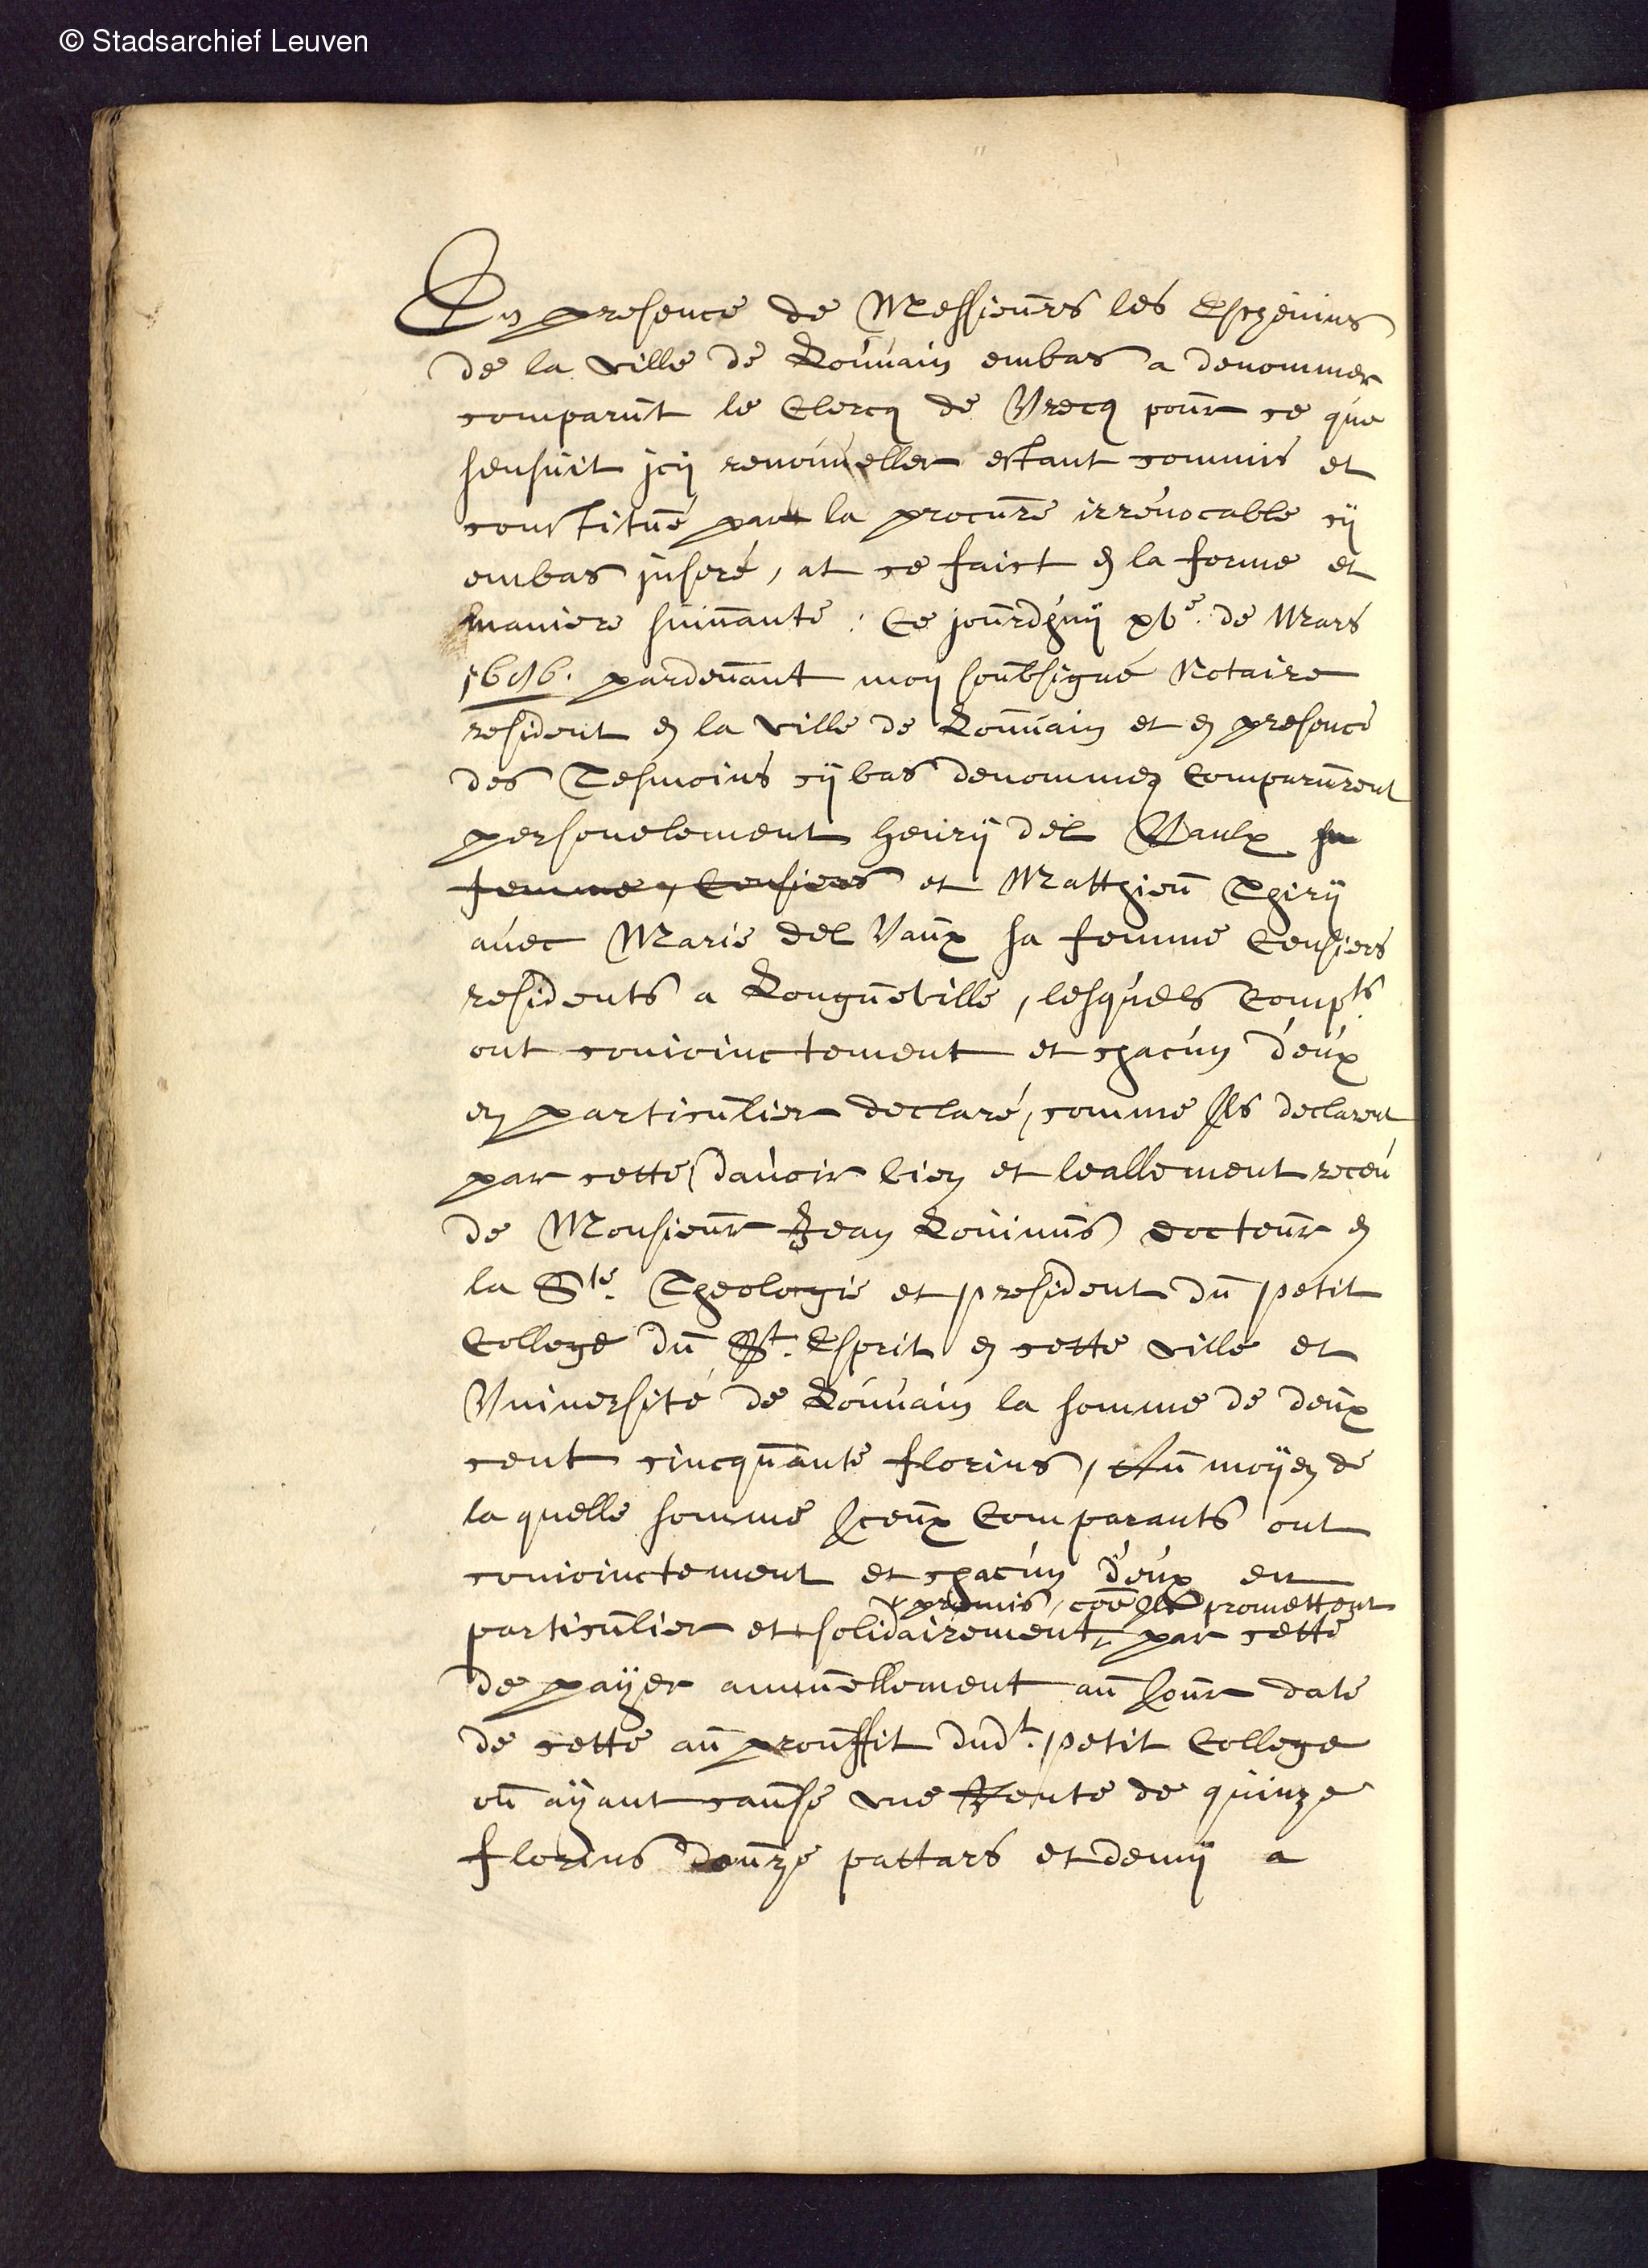 © Stadsarchief Leuven
En presence de Messieurs les Eschevins
de la ville de Louvain embas a denommer
comparut le Clercq de Vrecq pour ce que
sensuit icij renouveller estant commis et
constitué par la procure irrevocable cij
embas inseré, at ce faict en la forme et
maniere suivante: Ce jourdhuij xve. de Mars
1696. pardevant moij soubsigné Notaire
resident en la ville de Louvain et en presence
des Tesmoins cijbas denommez Comparurent
personelement Henrij del Vaulx sa
femme, Censiers et Matthieu Thirij
avec Marie del Vaux sa femme Censiers
residents a Longueville, lesquels Compts.
ont conioinctement et chacun d'eux
en particulier declaré, comme Ils declarent
par cette, davoir bien et leallement receu
de Monsieur Jean Lovinus docteur en
la Ste. Theologie et president du petit
College du St. Esprit en cette ville et
Université de Louvain la somme de deux
cent cincquante florins, Au moijen de
la quelle somme Iceux Comparants ont
conioinctement et chacun d'eux en
promis, coe Ils promettent
particulier et solidairement, par cette
de paijer annuellement au Jour date
de cette au prouffit dudt. petit College
ou aijant cause une Rente de quinze
florins douze pattars et demij a